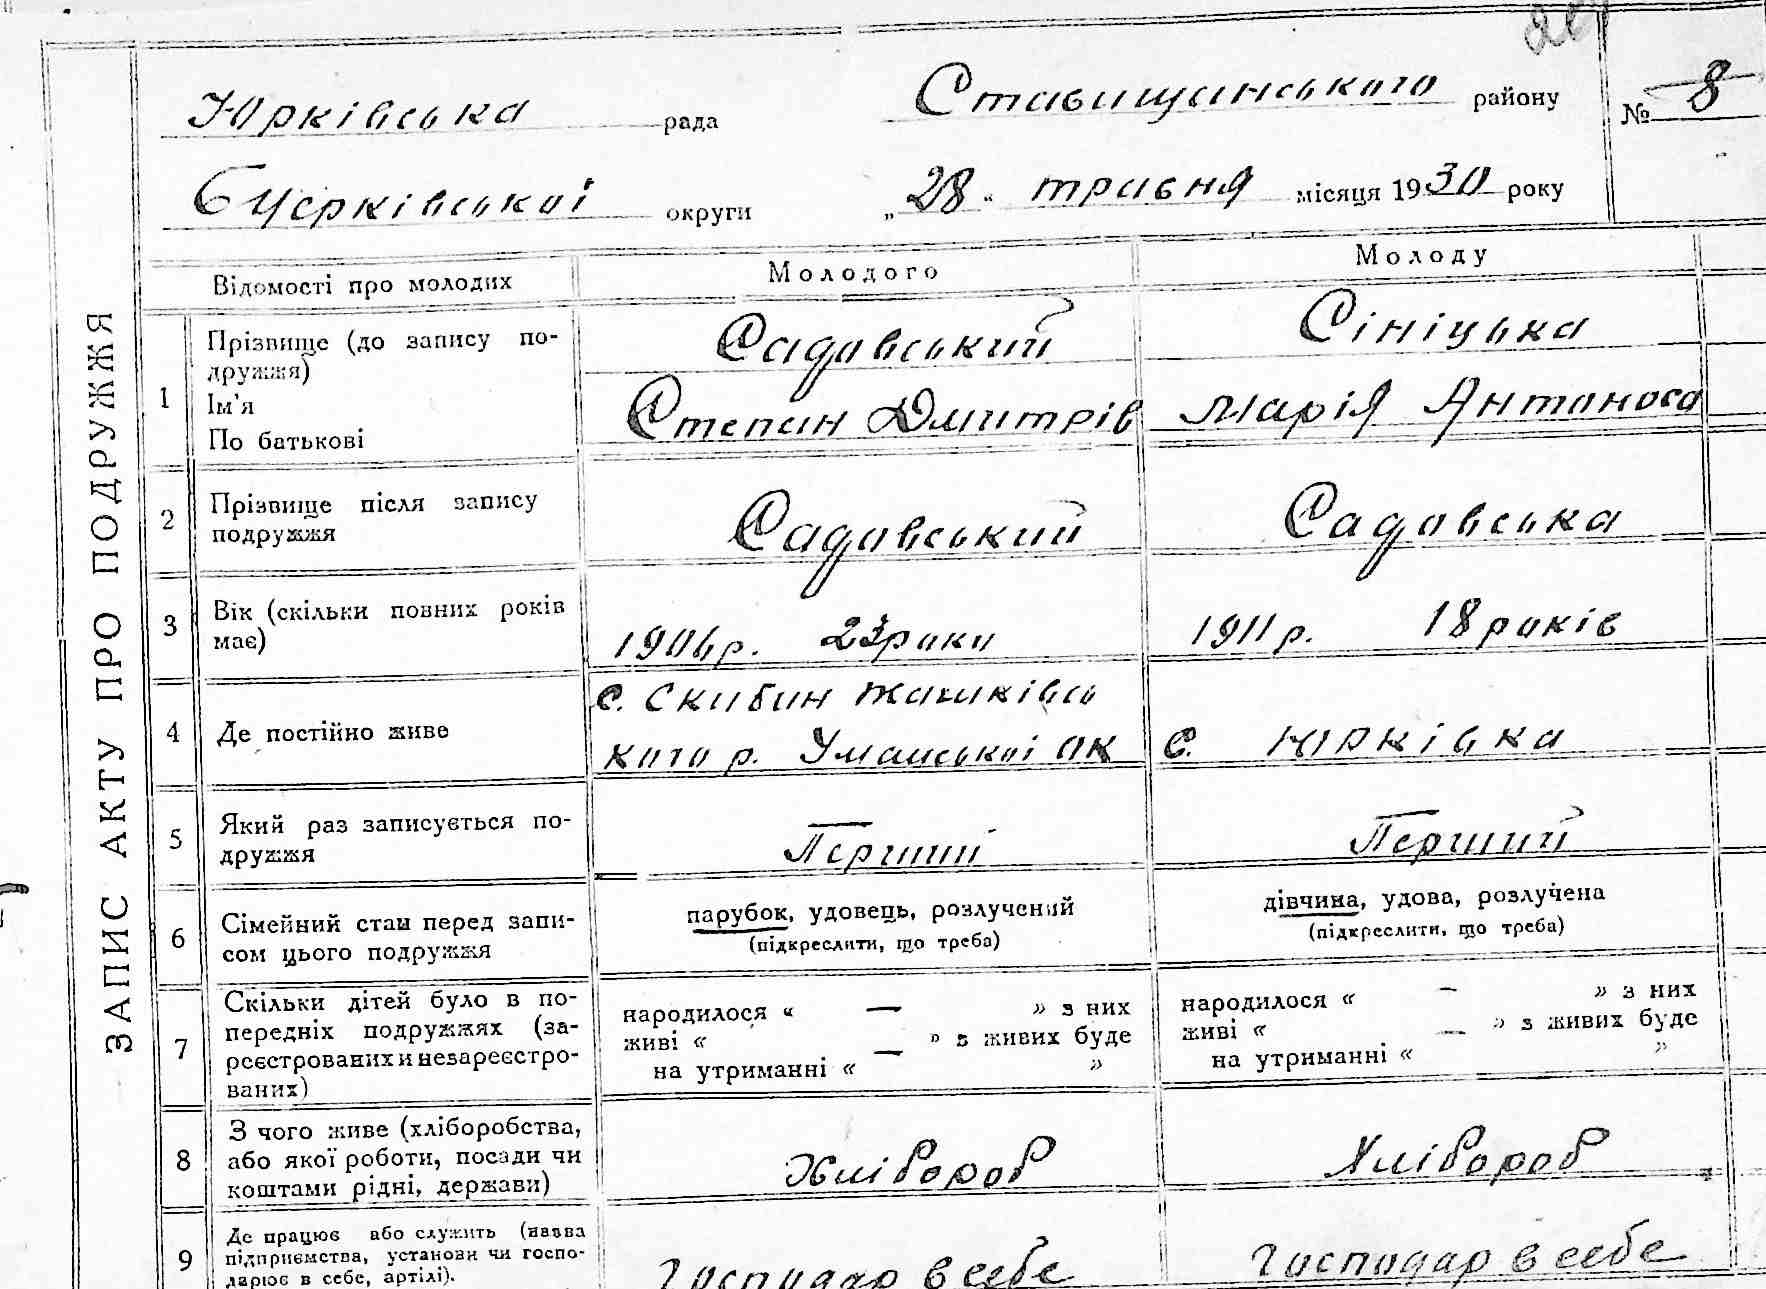 ЗАПИС АКТУ ПРО ПОДРУЖЖЯ
Юрківська рада Ставищанського району № 8
БЦерківської округи „28“ травня місяця 1930 року
Відомості про молодих Молодого Молоду
1 Прізвище (до запису по-
дружжя)
Ім'я
По батькові
Садовський
Степан Дмитрів
Сініцька
Марія Антонова
2 Прізвище після запису
подружжя
Садовський
Садовська
3 Вік (скільки повних років
має)
1906р. 23роки
1911р. 18років
4 Де постійно живе
с. Скибин Жашківсь
кого р. Уманської ок
с. Юрківка
5 Який раз записується по-
дружжя
Перший
Перший
6 Сімейний стан перед запи-
сом цього подружжя
парубок, удовець, розлучений
(підкреслити, що треба)
дівчина, удова, розлучена
(підкреслити, що треба)
7 Скільки дітей було в по-
передніх подружжях (за-
реєстрованих и незареєстро-
ваних)
народилося « — » з них
живі « — » з живих буде
на утриманні « »
народилося « — » з них
живі « — » з живих буде
на утриманні « »
8 З чого живе (хліборобства,
або якої роботи, посади чи
коштами рідні, держави)
Хлібороб
Хлібороб
9 Де працює або служить (назва
підприємства, установи чи госпо-
дарює в себе, артілі).
Господар в себе
Господар в себе